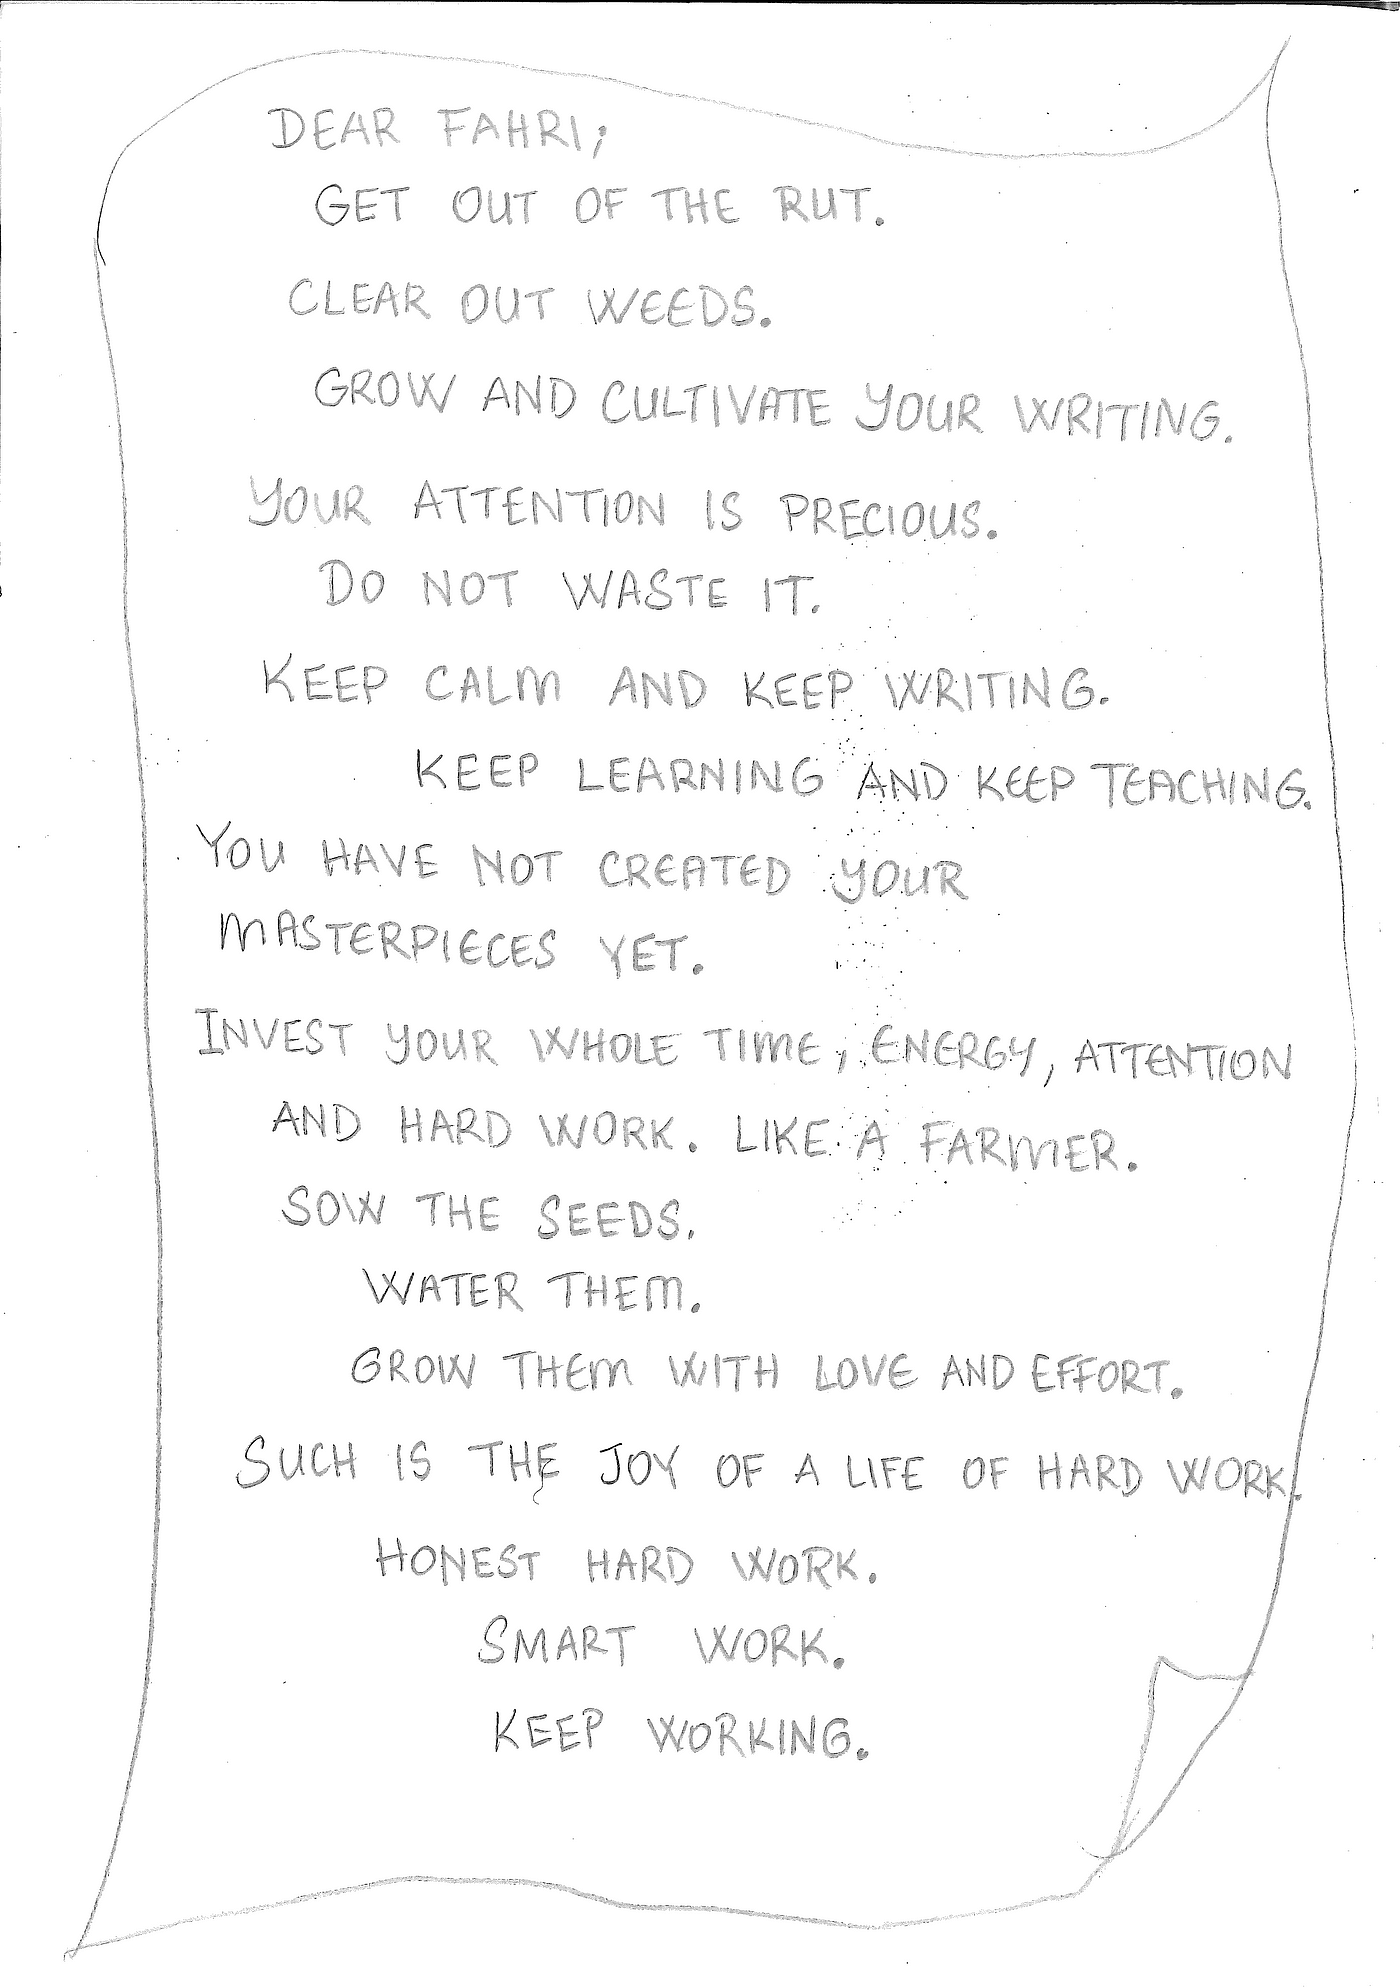 DEAR FAHRI;
GET OUT OF THE RUT.
CLEAR OUT WEEDS.
GROW AND CULTIVATE YOUR WRITING.
YOUR ATTENTION IS PRECIOUS.
DO NOT WASTE IT.
KEEP CALM AND KEEP WRITING.
KEEP LEARNING AND KEEP TEACHING.
YOU HAVE NOT CREATED YOUR
MASTERPIECES YET.
INVEST YOUR WHOLE TIME, ENERGY, ATTENTION
AND HARD WORK. LIKE A FARMER.
SOW THE SEEDS.
WATER THEM.
GROW THEM WITH LOVE AND EFFORT.
SUCH IS THE JOY OF A LIFE OF HARD WORK.
HONEST HARD WORK.
SMART WORK.
KEEP WORKING.